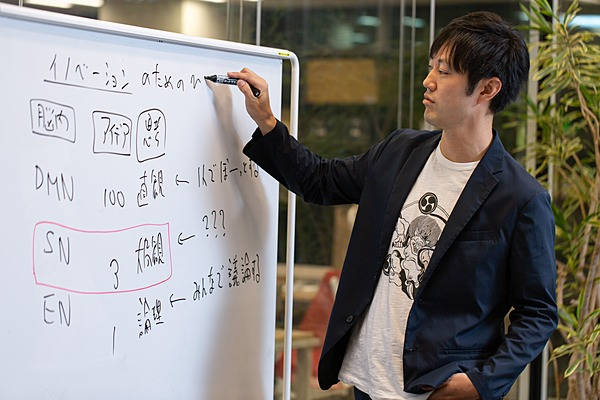 イノベーション のための
脳内 アイデア 思考
DMN 100 直観 ← 1人でぼーっとする
SN 3 大局観 ← ???
EN 1 論理 ← みんなで議論する